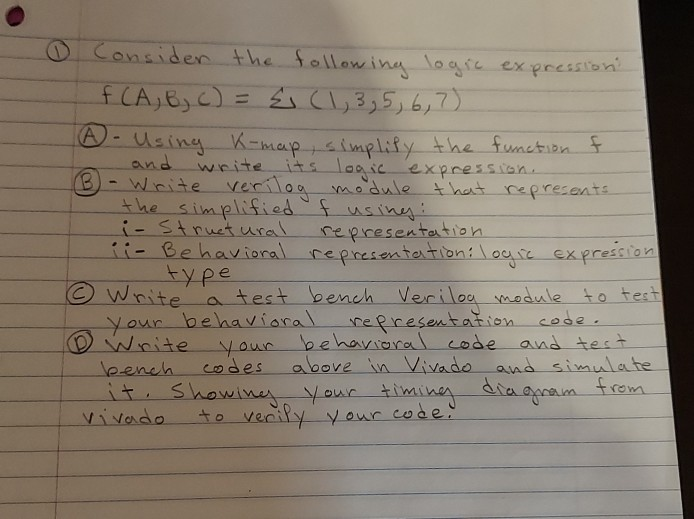 ① Consider the following logic expression:
f(A,B,C) = Σ (1,3,5,6,7)
Ⓐ - Using K-map, simplify the function f
and write its logic expression.
Ⓑ - Write verilog module that represents
the simplified f using:
i- Structural representation
ii- Behavioral representation: logic expression
type
Ⓒ Write a test bench Verilog module to test
your behavioral representation code.
Ⓓ Write your behavioral code and test
bench codes above in Vivado and simulate
it. Showing your timing diagram from
vivado to verify your code.